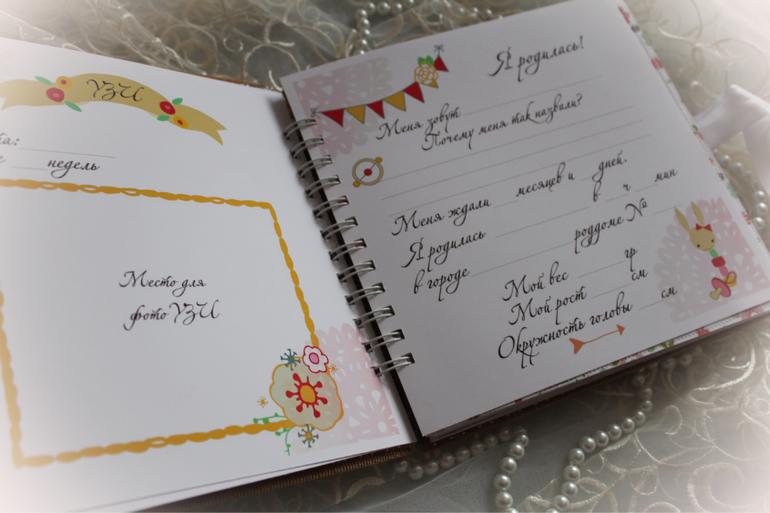 УЗИ
та:
недель
Место для
фото УЗИ
Я родилась!
Меня зовут
Почему меня так назвали?
Меня ждали месяцев и дней.
Я родилась в ч мин
в городе роддоме №
Мой вес гр
Мой рост см
Окружность головы см